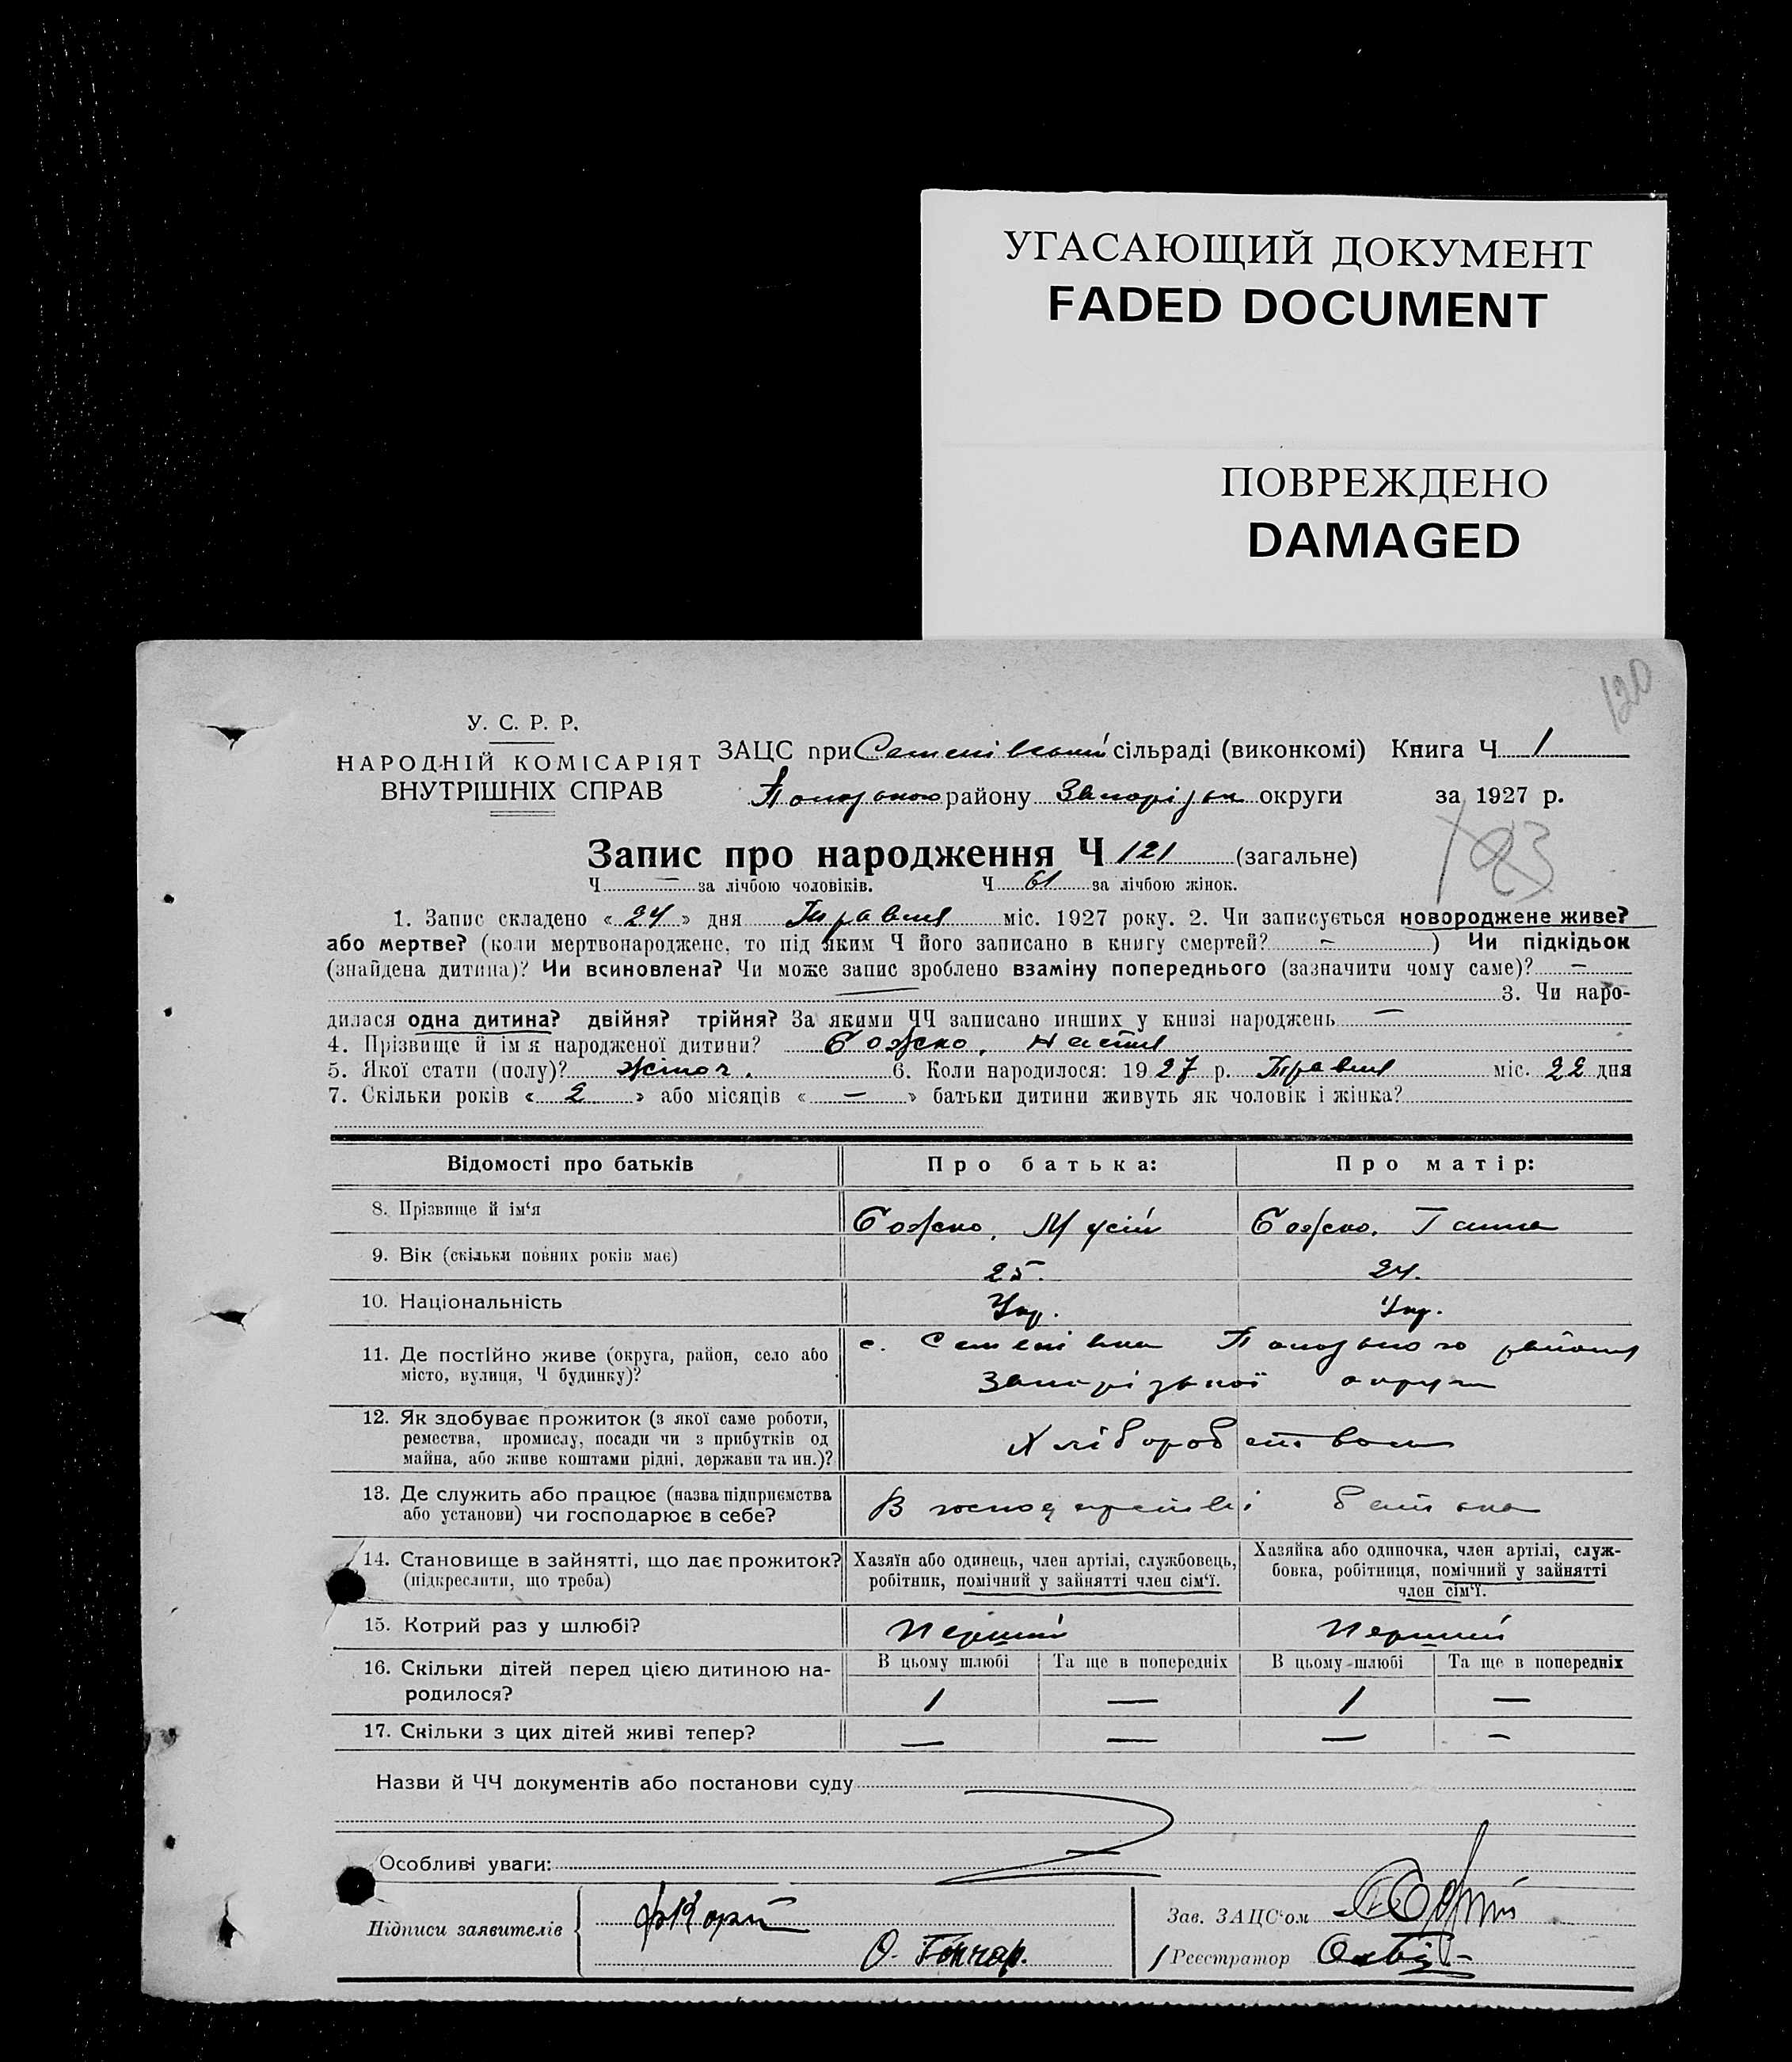 УГАСАЮЩИЙ ДОКУМЕНТ
FADED DOCUMENT
ПОВРЕЖДЕНО
DAMAGED
120
У. С. Р. Р.
НАРОДНІЙ КОМІСАРІЯТ
ВНУТРІШНІХ СПРАВ
ЗАЦС при Семенівській сільраді (виконкомі) Книга Ч 1
району Запорізьк округи за 1927 р.
Запис про народження Ч 121 (загальне)
Ч — за лічбою чоловіків. Ч 61 за лічбою жінок.
1. Запис складено « 24 » дня Травня міс. 1927 року. 2. Чи записується новороджене живе?
або мертве? (коли мертвонароджене, то під яким Ч його записано в книгу смертей? – ) Чи підкідьок
(знайдена дитина)? Чи всиновлена? Чи може запис зроблено взаміну попереднього (зазначити чому саме)? —
3. Чи наро-
дилася одна дитина? двійня? трійня? За якими ЧЧ записано инших у книзі народжень —
4. Прізвище й ім'я народженої дитини? Божко, Настя
5. Якої стати (полу)? жіноч. 6. Коли народилося: 1927 р. Травня міс. 22 дня
7. Скільки років « 2 » або місяців « — » батьки дитини живуть як чоловік і жінка?
Відомості про батьків Про батька: Про матір:
8. Прізвище й ім'я Божко, Мусій Божко, Ганна
9. Вік (скільки повних років має) 25. 24.
10. Національність Укр. Укр.
11. Де постійно живе (округа, район, село або
місто, вулиця, Ч будинку)?
с. Семенівка району
Запорізької округи
12. Як здобуває прожиток (з якої саме роботи,
ремества, промислу, посади чи з прибутків од
майна, або живе коштами рідні, держави та ин.)?
Хліборобством
13. Де служить або працює (назва підприємства
або установи) чи господарює в себе?
В господарстві батька
14. Становище в зайнятті, що дає прожиток?
(підкреслити, що треба)
Хазяїн або одинець, член артілі, службовець,
робітник, помічний у зайнятті член сім'ї.
Хазяйка або одиночка, член артілі, служ-
бовка, робітниця, помічний у зайнятті
член сім'ї.
15. Котрий раз у шлюбі? Перший Перший
16. Скільки дітей перед цією дитиною на-
родилося?
В цьому шлюбі Та ще в попередніх В цьому шлюбі Та ще в попередніх
1 — 1 —
17. Скільки з цих дітей живі тепер? — — — –
Назви й ЧЧ документів або постанови суду
Особливі уваги:
Підписи заявителів
О. Гончар.
Зав. ЗАЦС'ом
Реєстратор